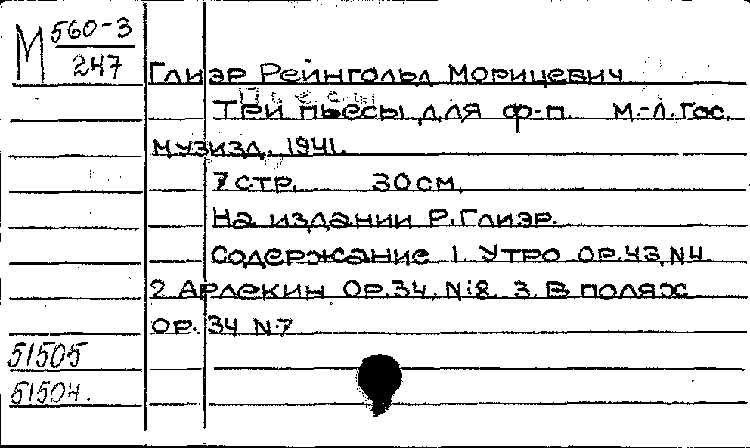 М 560-3
247
Глиэр Рейнгольд Морицевич
Три пьесы для ф-п. М.-Л. Гос.
музизд. 1941.
7 стр. 30 см.
На издании Р. Глиэр.
Содержание 1. Утро Ор. 43, N4
2 Арлекин Ор. 34, N:8 3. В полях
ор. 34 N:7
51505
51504.